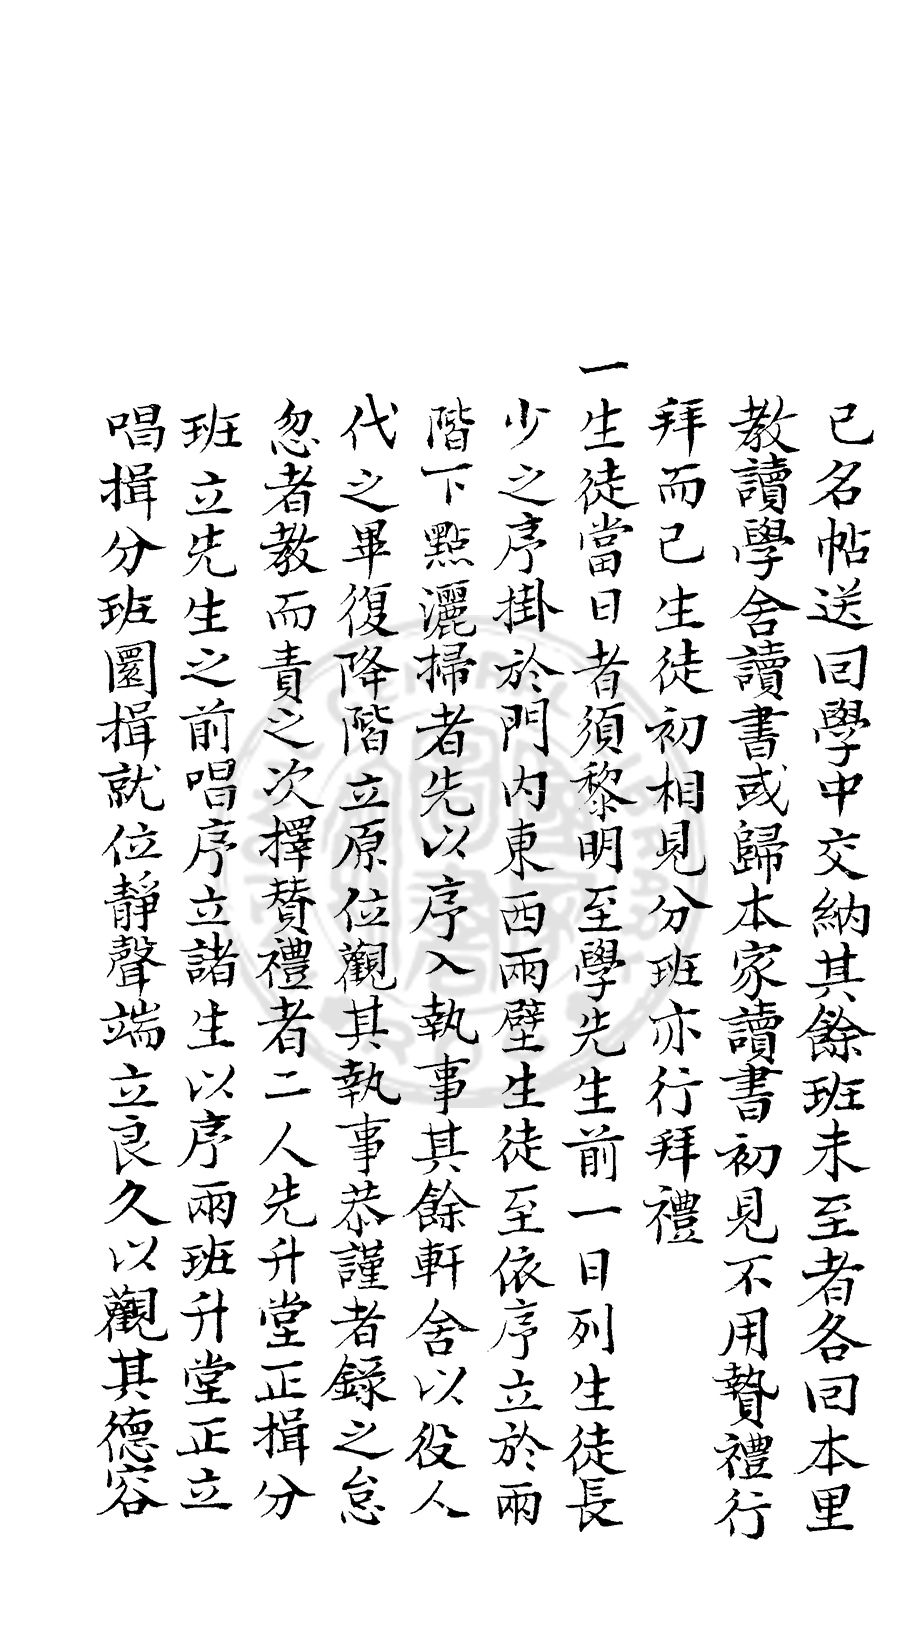 已名帖送回學中交納其餘班未至者各回本里
教讀學舍讀書或歸本家讀書初見不用贄禮行
拜而已生徒初相見分班亦行拜禮
一生徒當日者須黎明至學先生前一日列生徒長
少之序掛於門内東西兩壁生徒至依序立於兩
階下點灑掃者先以序入執事其餘軒舍以役人
代之畢復降階立原位觀其執事恭謹者錄之怠
忽者教而責之次擇贊禮者二人先升堂正揖分
班立先生之前唱序立諸生以序兩班升堂正立
唱揖分班圜揖就位靜聲端立良久以觀其德容